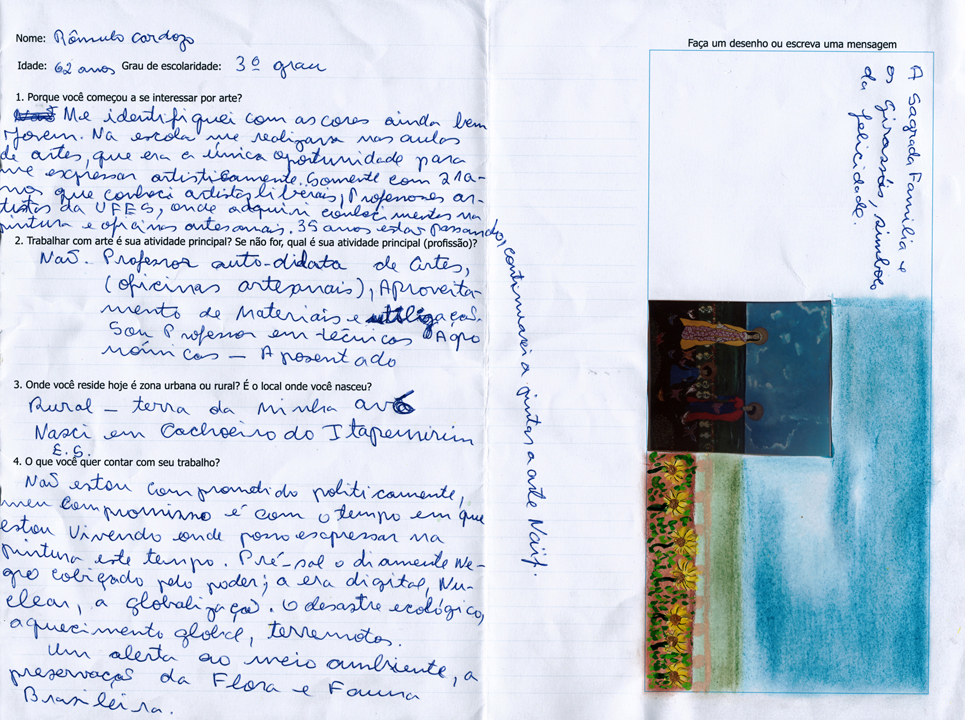 Nome: Rômulo Cardozo
Idade: 62 anos Grau de escolaridade: 3º grau
1. Porque você começou a se interessar por arte?
Me identifiquei com as cores ainda bem
jovem. Na escola me realizava nas aulas
de artes, que era a única oportunidade para
me expressar artisticamente. Somente com 21 a-
nos que conheci artistas liberais, Professores ar-
tistas da UFES, onde adquiri conhecimentos na
pintura e oficinas artesanais. 35 anos estar passando,
continuarei a pintar a arte Naif.
2. Trabalhar com arte é sua atividade principal? Se não for, qual é sua atividade principal (profissão)?
Não. Professor auto-didata de Artes,
(oficinas artesanais), Aproveita-
mento de Materiais e utilização.
Sou Professor em técnicas Agro
nômicas — Aposentado
3. Onde você reside hoje é zona urbana ou rural? É o local onde você nasceu?
Rural - terra da minha avó
Nasci em Cachoeiro do Itapemirim
E.S.
4. O que você quer contar com seu trabalho?
Não estou comprometido politicamente,
meu compromisso é com o tempo em que
estou vivendo onde posso expressar na
pintura este tempo. Pré-sal o diamente Ne-
gro cobiçado pelo poder; a era digital, Nu-
clear, a globalização. O desastre ecológico,
aquecimento global, terremotos.
Um alerta ao meio ambiente, a
preservação da Flora e Fauna
Brasileira.
Faça um desenho ou escreva uma mensagem
A Sagrada Familia e
os Girassóis, simbolo
da felicidade.